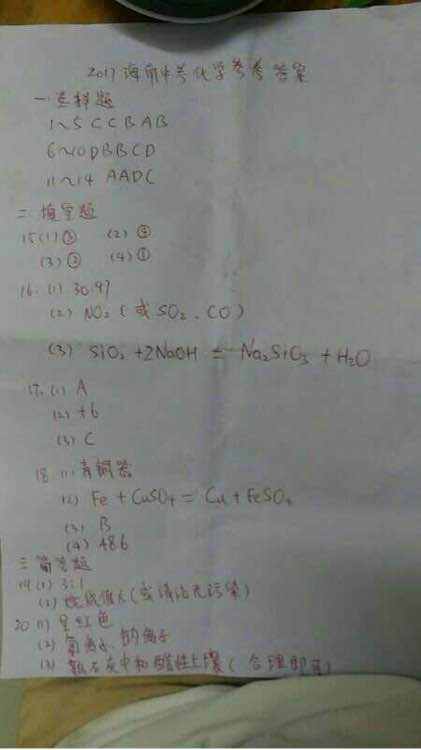 2017海南中考化学参考答案
一.选择题
1~5 CCBAB
6~10 DBBCD
11~14 AADC
二.填空题
15(1)③ (2)④
(3)② (4)①
16.(1)30.97
(2) NO₂(或SO₂、CO)
(3) SiO₂+2NaOH=Na₂SiO₃+H₂O
17.(1) A
(2)+6
(3) C
18(1)青铜器
(2) Fe+CuSO₄=Cu+FeSO₄
(3) B
(4) 48.6
三简答题
19(1) 3:1
(2)热值大(或清洁无污染)
20(1)呈红色
(2)氯离子、钙离子
(3)熟石灰中和酸性土壤(合理即可)